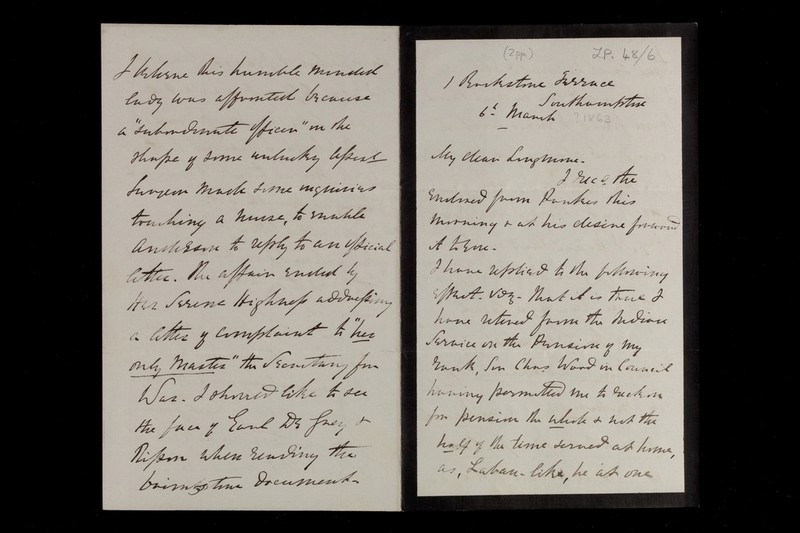 (2pp.) LP. 48/6
1 Rockstone Terrace
Southampton
6th March ? 1863
My dear Longmore.
I recd the
enclosed from Parkes this
morning & at his desire forward
it to you.
I have replied to the following
effect. viz. that it is true I
have retired from the Indian
Service on the Pension of my
rank, Sir Chas Wood in Council
having permitted me to reckon
for pension the whole & not the
half of the time served at home,
as, Laban-like, he at one
I believe this humble minded
lady was affronted because
a "subordinate officer" in the
shape of some unlucky Assist
Surgeon made some inquiries
touching a nurse, to enable
Anderson to reply to an official
letter. The affair ended by
Her Serene Highness addressing
a letter of complaint to "her
only Master" the Secretary for
War. I should like to see
the face of Earl De Grey &
Ripon when reading the
brimstone document.